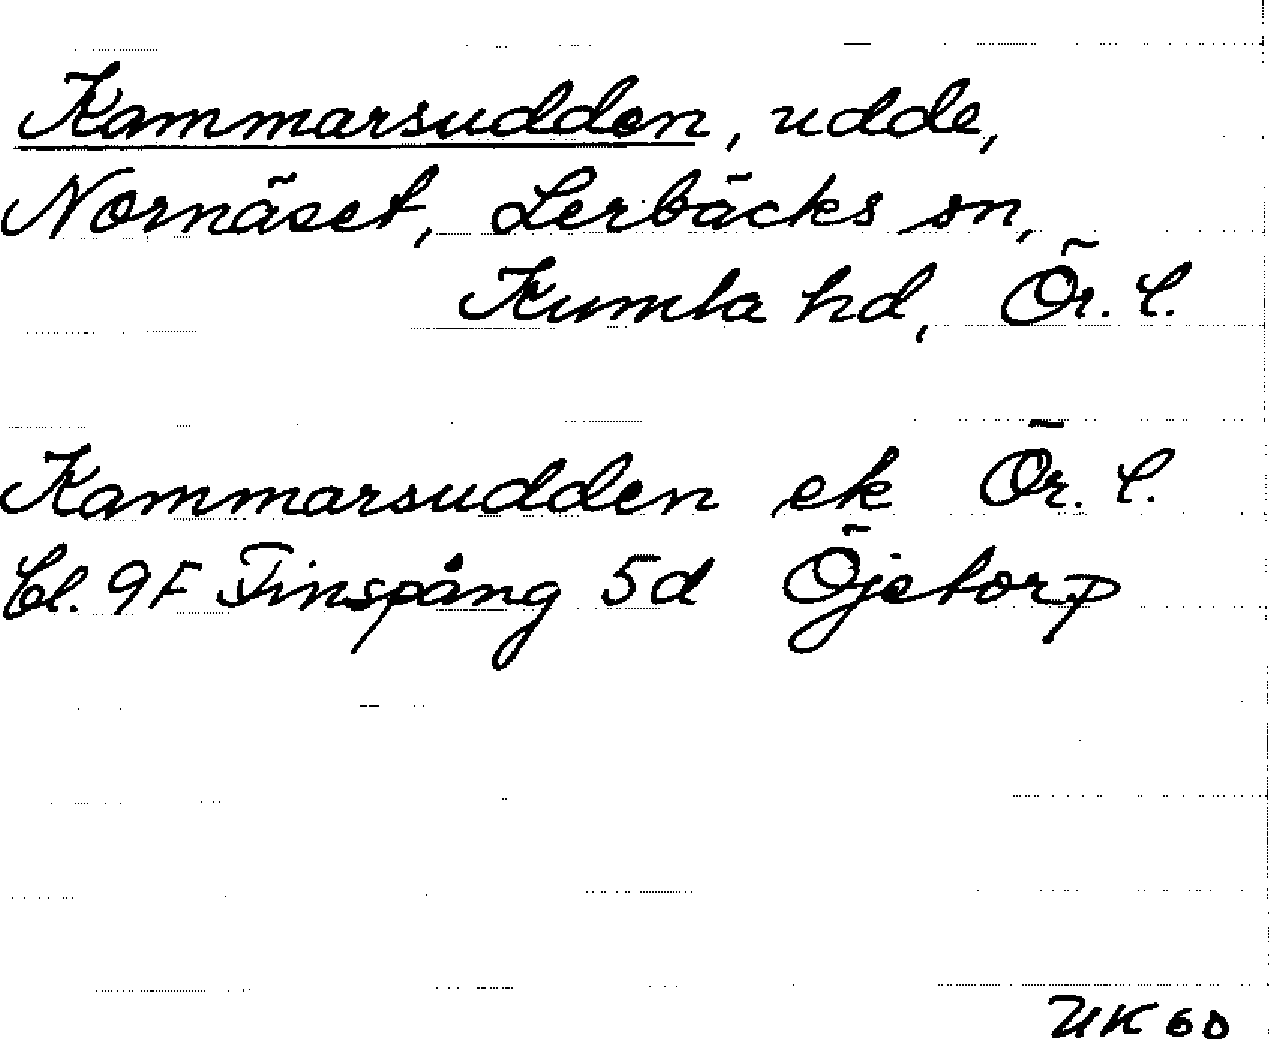 Kammarsudden, udde,
Nornäset, Lerbäcks sn,
Kumla hd, Ör. l.
Kammarsudden ek Ör. l.
bl. 9F Finspång 5d Öjetorp
UK 60